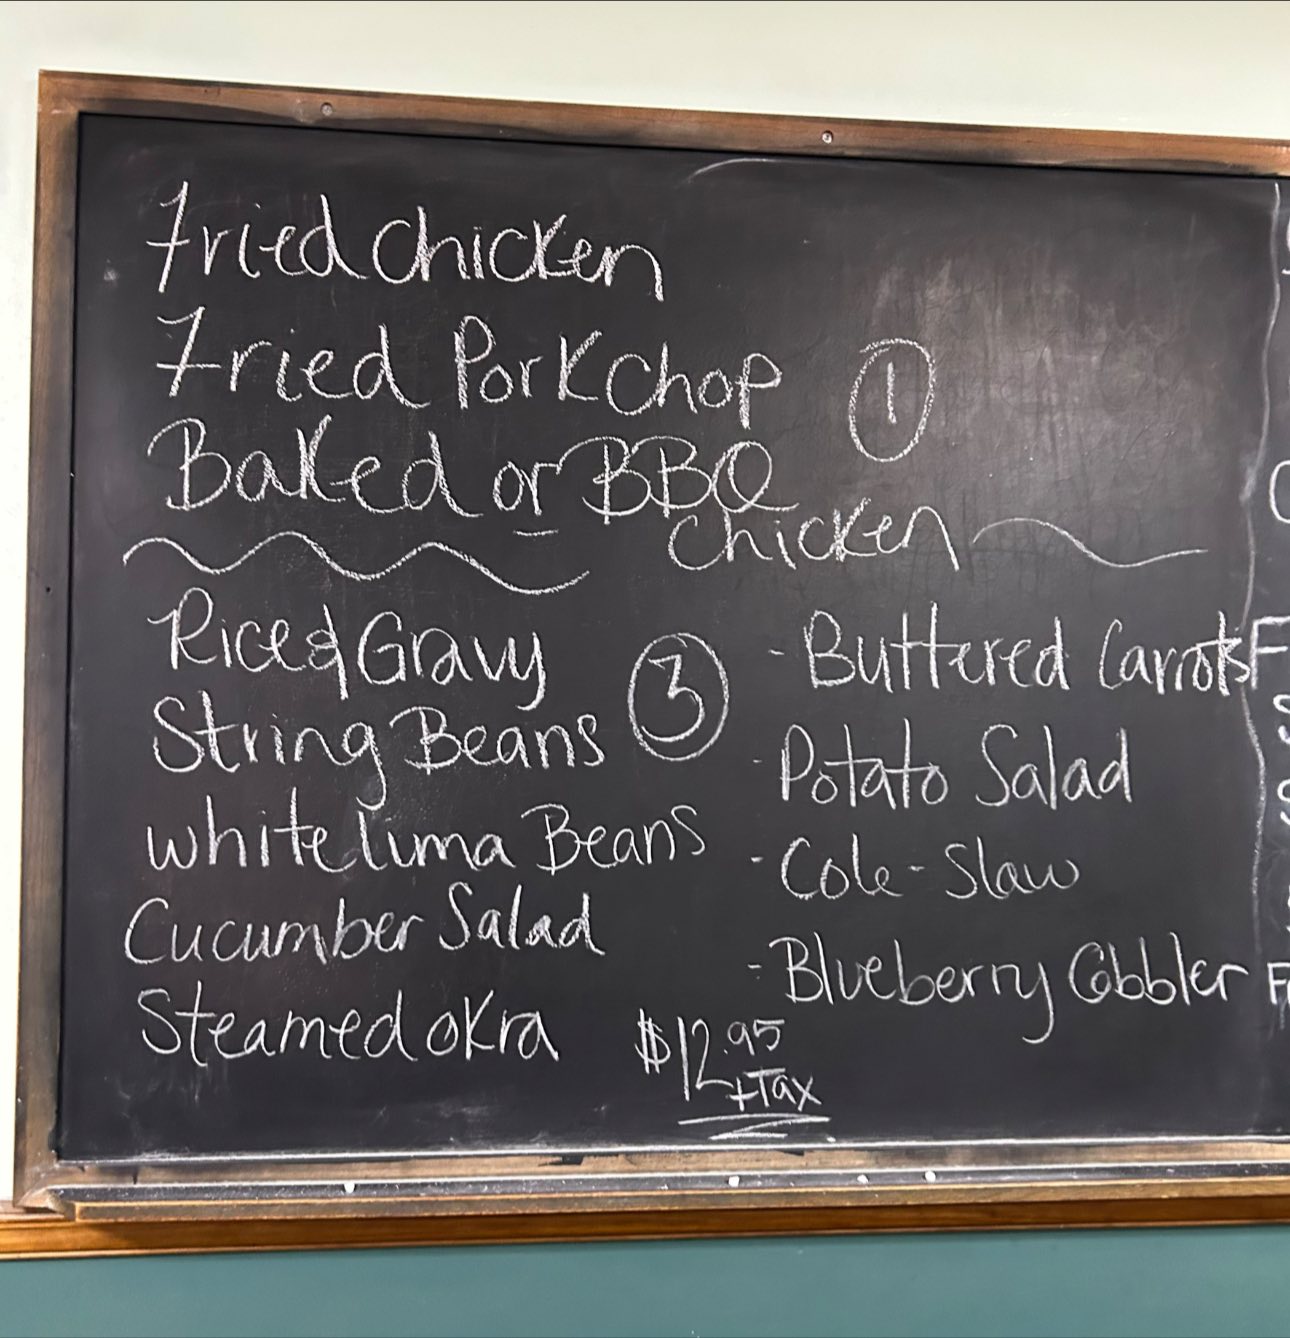 Fried chicken
Fried Pork Chop
①
Baked or BBQ
Chicken
Rice & Gravy
String Beans
③
white lima Beans
Cucumber Salad
Steamed okra
- Buttered Carrots
- Potato Salad
- Cole-Slaw
- Blueberry Cobbler
$12.95
+Tax